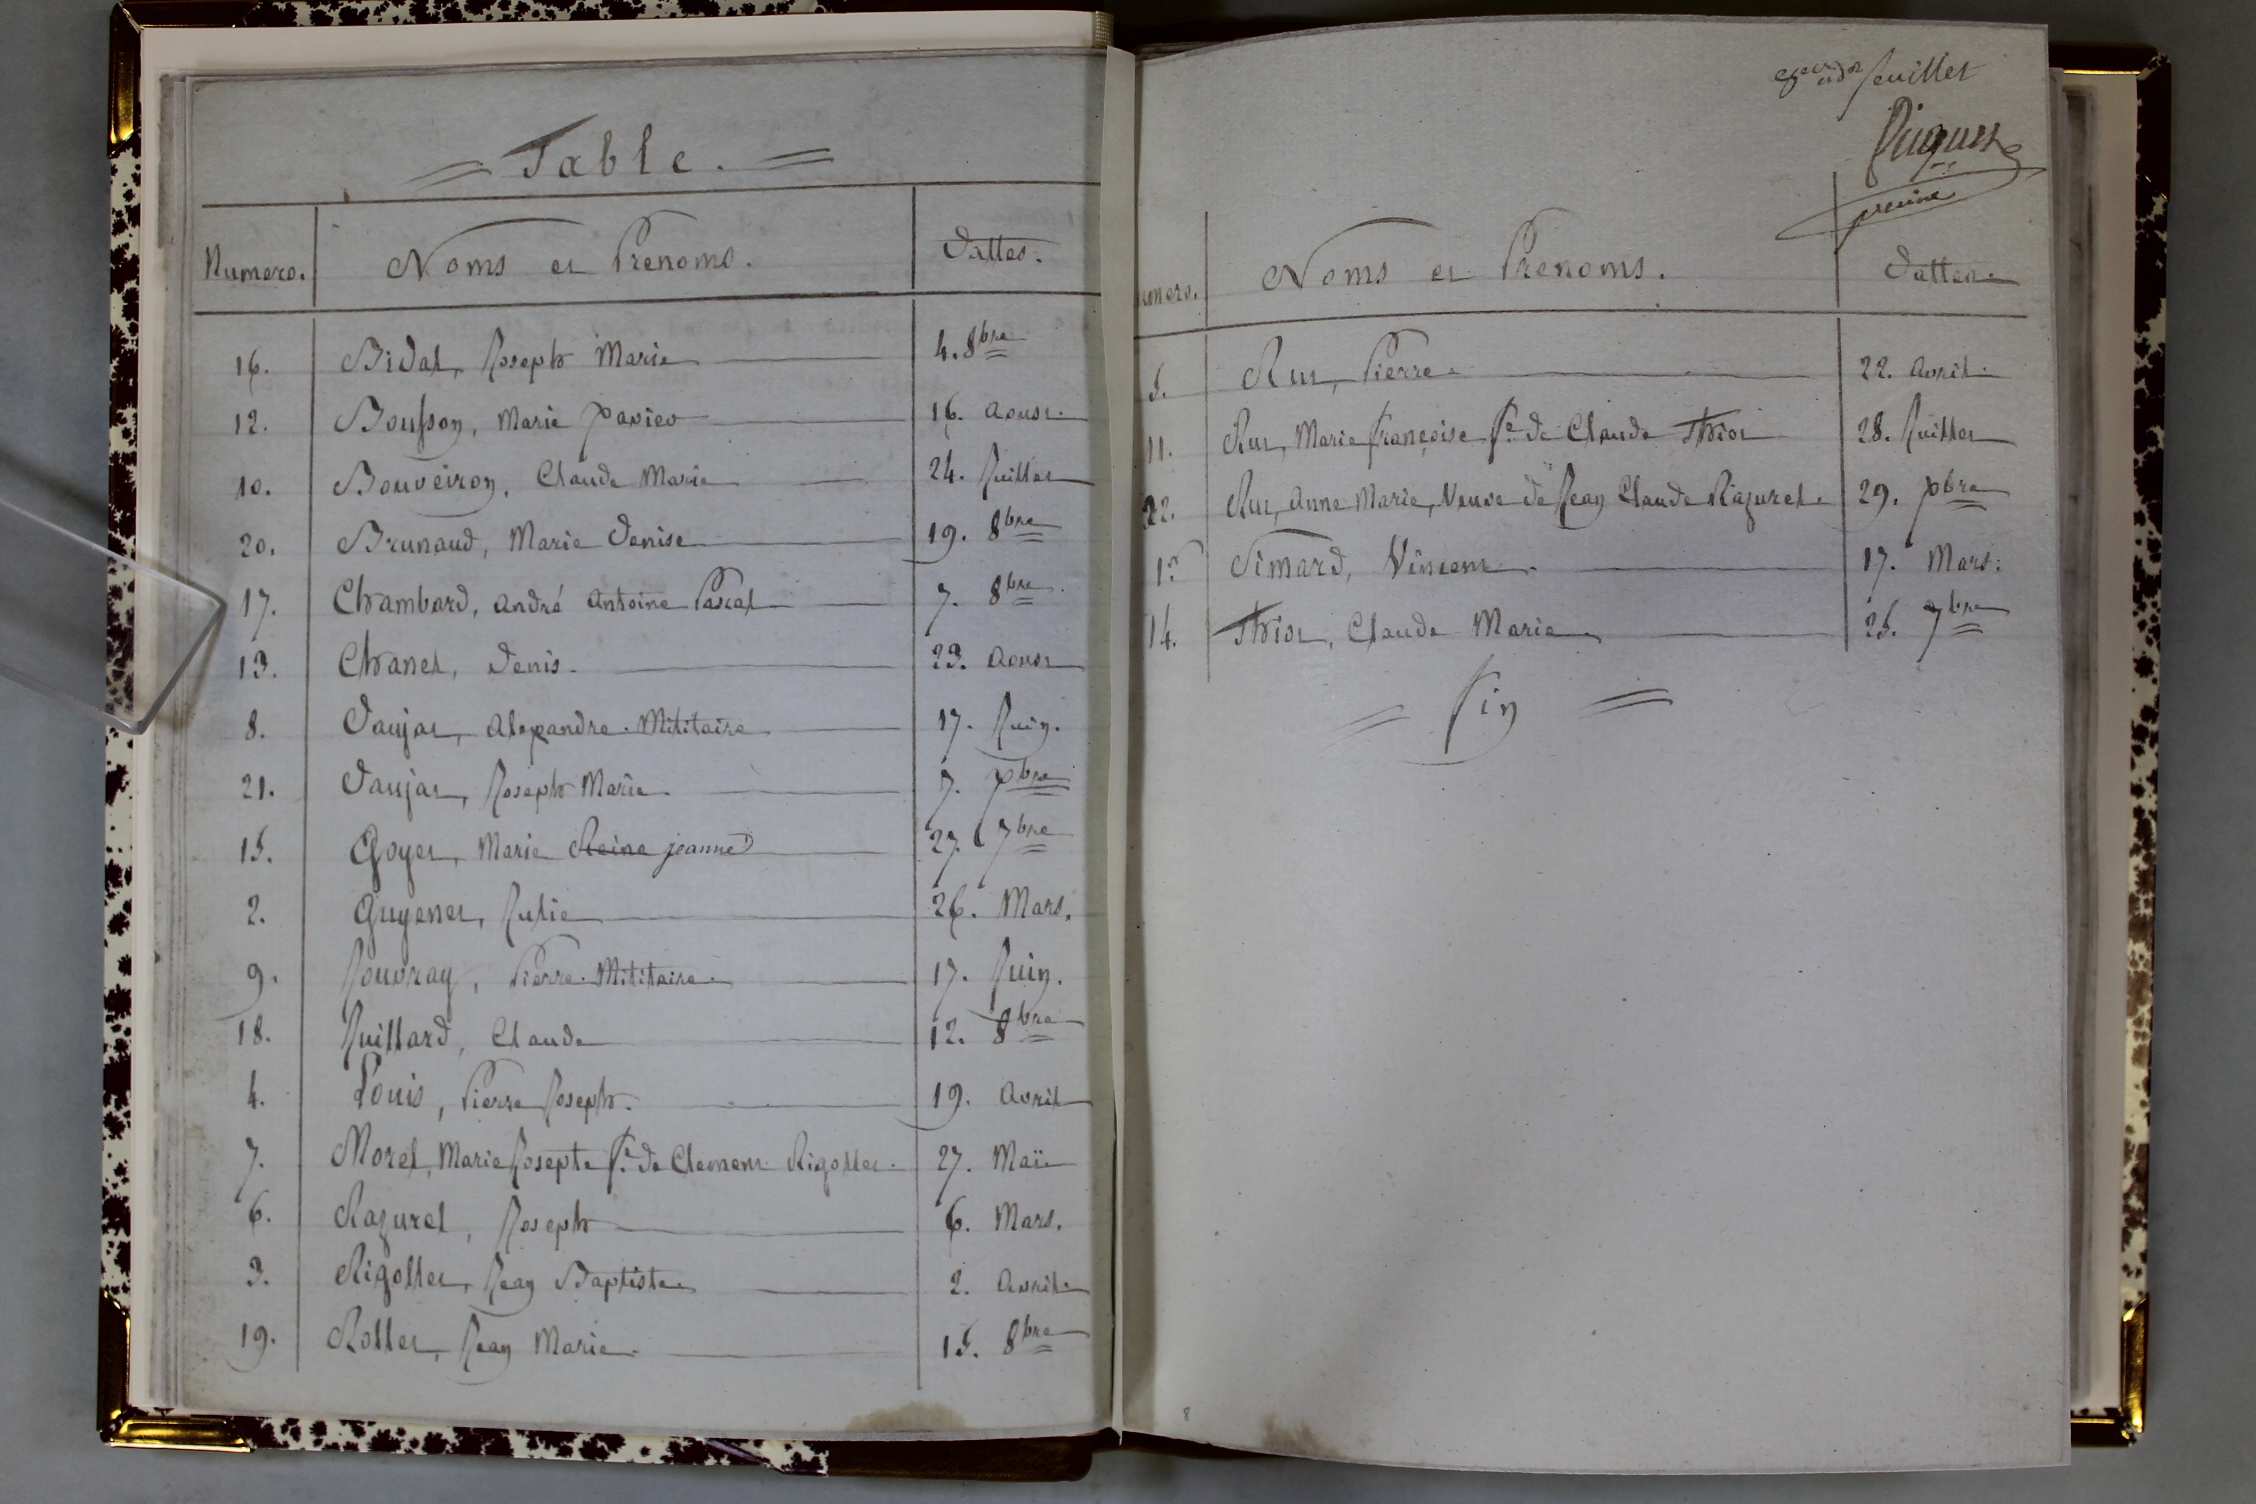 Table.
Numero. Noms et Prenoms. Dattes.
16. Bidal, Joseph Marie 4. 8bre
12. Bousson, Marie 16. aoust
10. Bouveiron, Claude Marie 24. Juillet
20. Brunaud, Marie Denise 19. 8bre
17. Chambard, André Antoine Pascal 7. 8bre
13. Chanel, Denis 23. aoust
8. Daujat, Alexandre. Militaire 17. Juin.
21. Daujat, Joseph Marie. 7. xbre
15. Goyet, Marie Reine jeanne 27. 7bre
2. Guyenet, Julie 26. Mars.
9. Jouvray, Pierre. Militaire. 17. Juin.
18. Juillard, Claude 12. 8bre
4. Louis, Pierre Joseph. 19. avril
7. Morel, Marie Josepte fe. de Clement Rigollet. 27. Maï
6. Razurel, Joseph 6. Mars.
3. Rigollet, Jean Baptiste 2. avril
19. Rollet, Jean Marie. 15. 8bre
feuillet
umero. Noms et Prenoms. Dattes
5. Rut, Pierre 22. avril
11. Rut, Marie françoise fe. de Claude Thiot 28. Juillet
22. Rut, Anne Marie, Veuve de Jean Claude Razurel 29. xbre
1er Simard, Vincent. 17. Mars.
14. Thiot, Claude Marie 25. 7bre
Fin
8